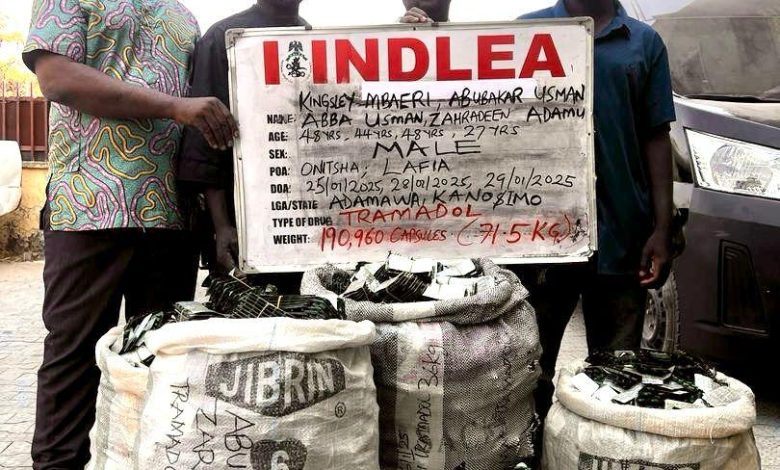 NDLEA
KINGSLEY MBAERI, ABUBAKAR USMAN
NAME: ABBA USMAN, ZAHRADEEN ADAMU
AGE: 48YRS, 44YRS, 48YRS, 27YRS
SEX: MALE
POA: ONITSHA, LAFIA
DOA: 25/01/2025, 28/01/2025, 29/01/2025
LGA/STATE: ADAMAWA, KANO & IMO
TYPE OF DRUG: TRAMADOL
WEIGHT: 190,960 CAPSULES (71.5KG)
JIBRIN
ABU
ZAR
TRAMADO
6
TRAMADOL 36KG